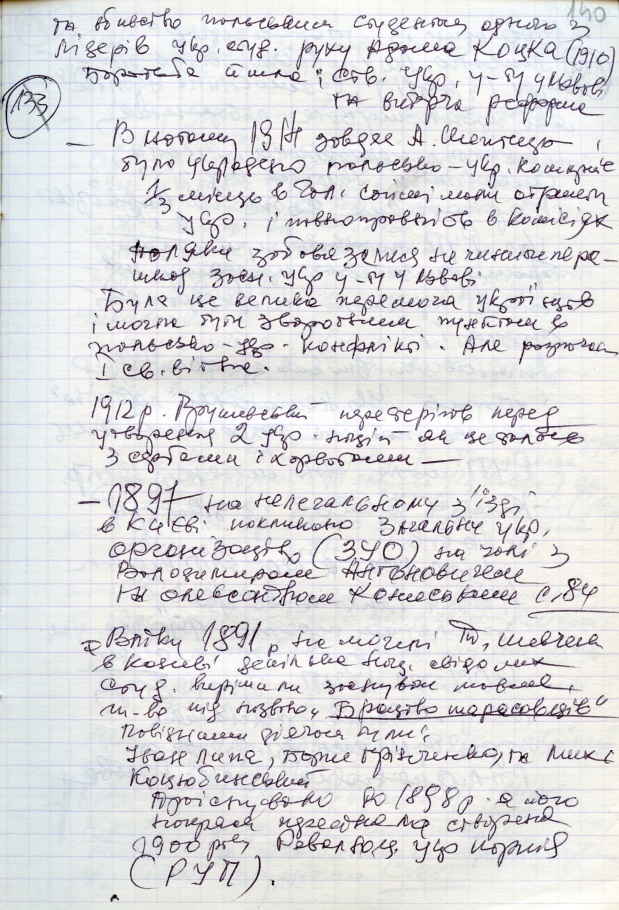 140
та вбивство польськими студентами одного з
лідерів укр. студ. руху Адама Коцка (1910)
Боротьба йшла і ств. укр. у-ту у Львові
та виборча реформа
133
– В лютому 1914 завдяки А. Шептицьк.
було укладено польсько-укр. компроміс
1/3 місць в Гал. соймі мали отримати
укр. і повноправність в комісіях
Поляки зобов'язалися не чинити пере-
шкод засн. укр у-ту у Львові.
Була це велика перемога українців
і могла бути зворотнім пунктом в
польсько-укр. конфлікті. Але розпочал.
І св. війна.
1912 р. Грушевський перестерігав перед
утворення 2 укр. націй як це було
з сербами і хорватами —
– 1897 на нелегальному з'їзді
в Києві покликано Загальну укр.
організацію (ЗУО) на чолі з
Володимиром Антоновичем
та Олександром Кониським с. 84
Влітку 1891 р. на могилі Т. Шевченка
в Каневі декілька нац. свідомих
студ. вирішили заснувати таємне
т-во під назвою „Братство тарасовців"
Повізними діячами були:
Іван Липа, Борис Грінченко, та Мих.
Коцюбинський
Проіснувало до 1898 р. а його
створена
1900 році Револ. укр партія
(РУП).